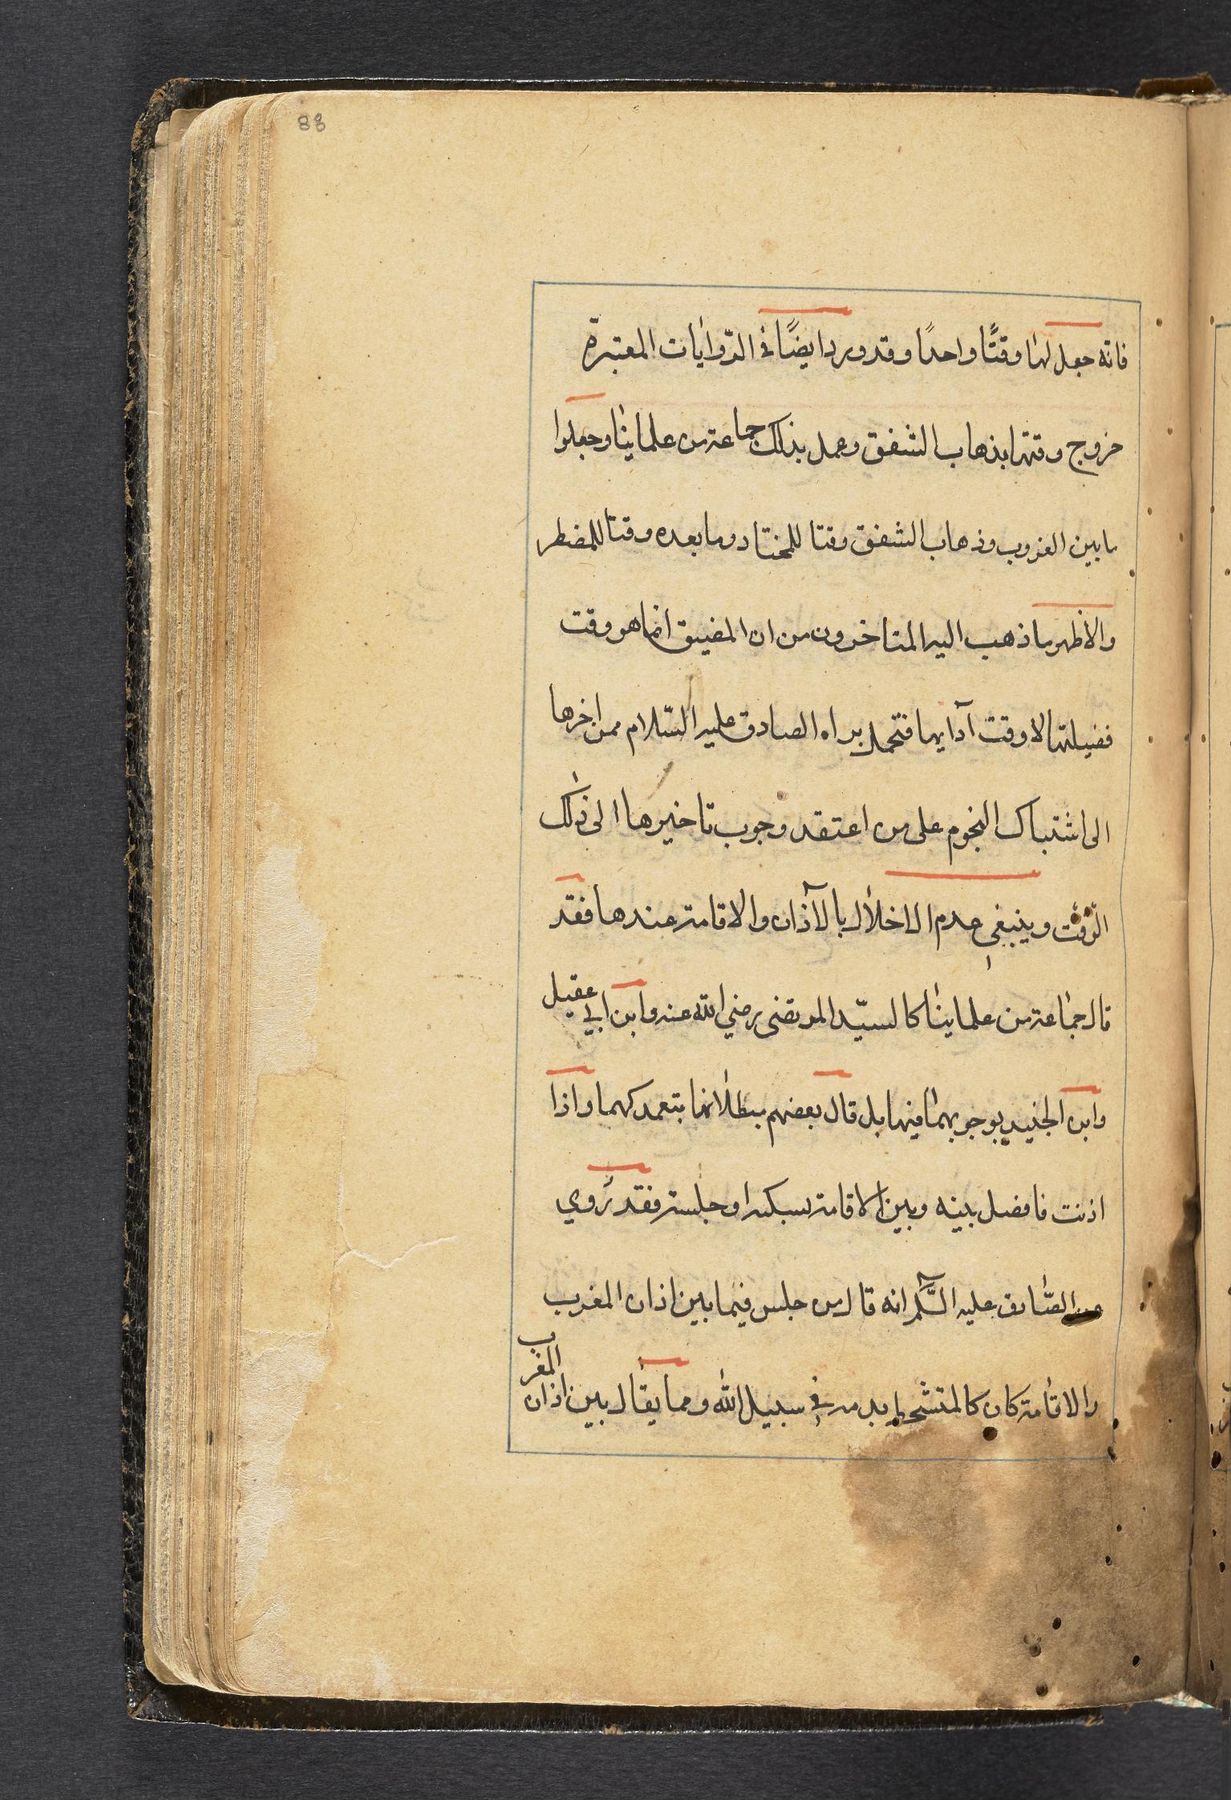 88
فانه جعل لها وقتًا واحدًا وقد ورد ايضًا في الرّوايات المعتبرة
خروج وقتها بذهاب الشفق وعمل بذلك جماعة من علمائنا وجعلوا
ما بين الغروب وذهاب الشفق وقتا للمختار وما بعده وقتا للمضطر
والاظهر ما ذهب اليه المتاخرون من ان المضيق انما هو وقت
فضيلتها لا وقت آدائها فتحمل براه الصادق عليه السّلام ممن اخرها
الى اشتباك النجوم على من اعتقد وجوب تاخيرها الى ذلك
الوقت وينبغي عدم الاخلال بالآذان والاقامة عندها فقد
قال جماعة من علمائنا كالسيّد المرتضى رضي الله عنه وابن ابي عقيل
وابن الجنيد بوجوبهما فيها بل قال بعضهم ببطلانها بتعمد تركهما واذا
اذنت فافصل بينه وبين الاقامة بسكتة او جلسة فقد رُوي
عن الصّادق عليه السَّلم انه قال من جلس فيما بين اذان المغرب
والاقامة كان كالمتشحط بدمه في سبيل الله ومما يقال بين اذان المغرب